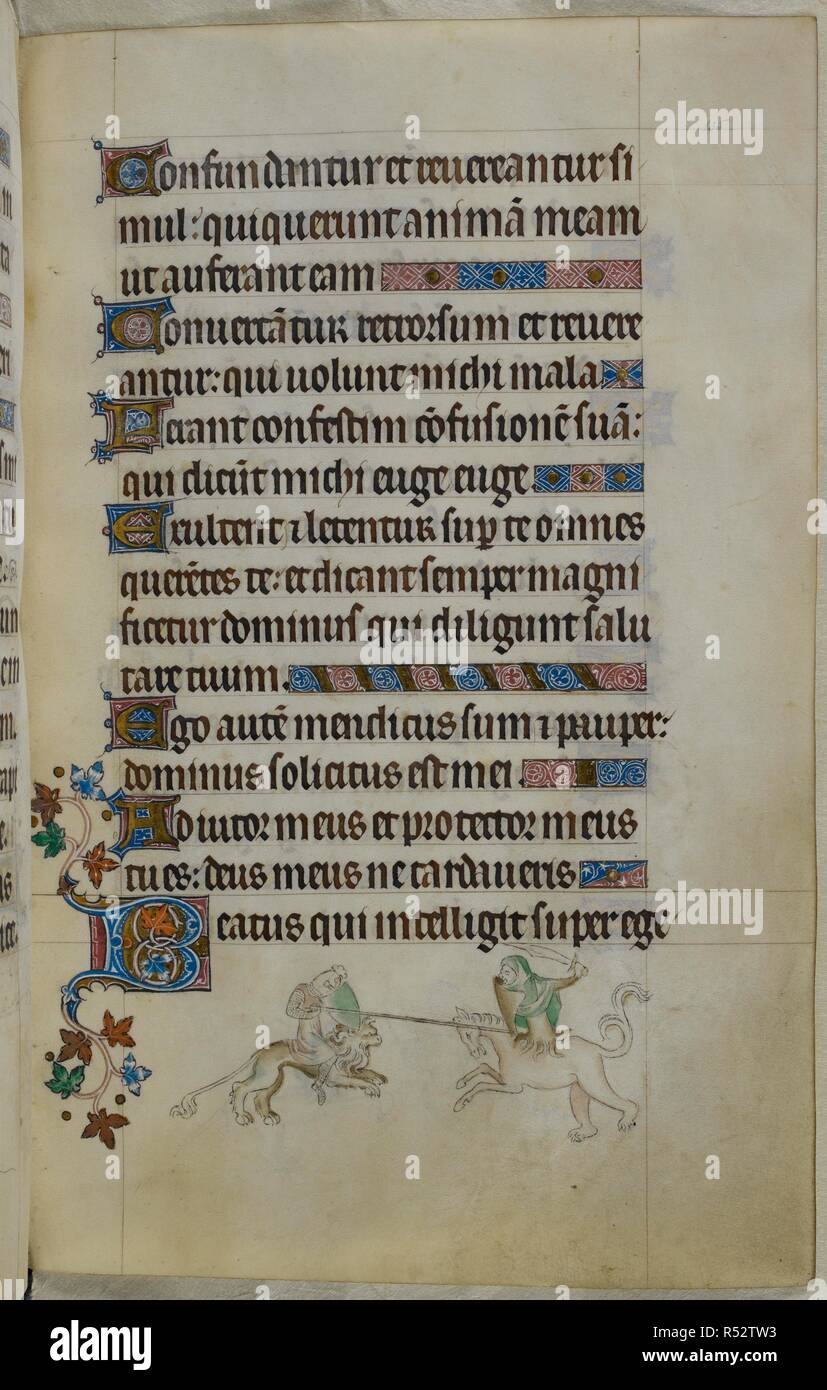 Confundantur et reuereantur si
mul: qui querunt animā meam
ut auferant eam
Conuertātur retrorsum et reuere
antur: qui uolunt michi mala
Perant confestim cōfusionē suā:
qui dicūt michi euge euge.
Exultent ⁊ letentur suꝑ te omnes
querētes te: et dicant semper magni
ficetur dominus qui diligunt salu
tare tuum.
Ego autē mendicus sum ⁊ pauper:
dominus solicitus est mei.
Adiutor meus et protector meus
tu es: deus meus ne tardaueris
Beatus qui intelligit super ege
alamy
Image ID: R52TW3
www.alamy.com